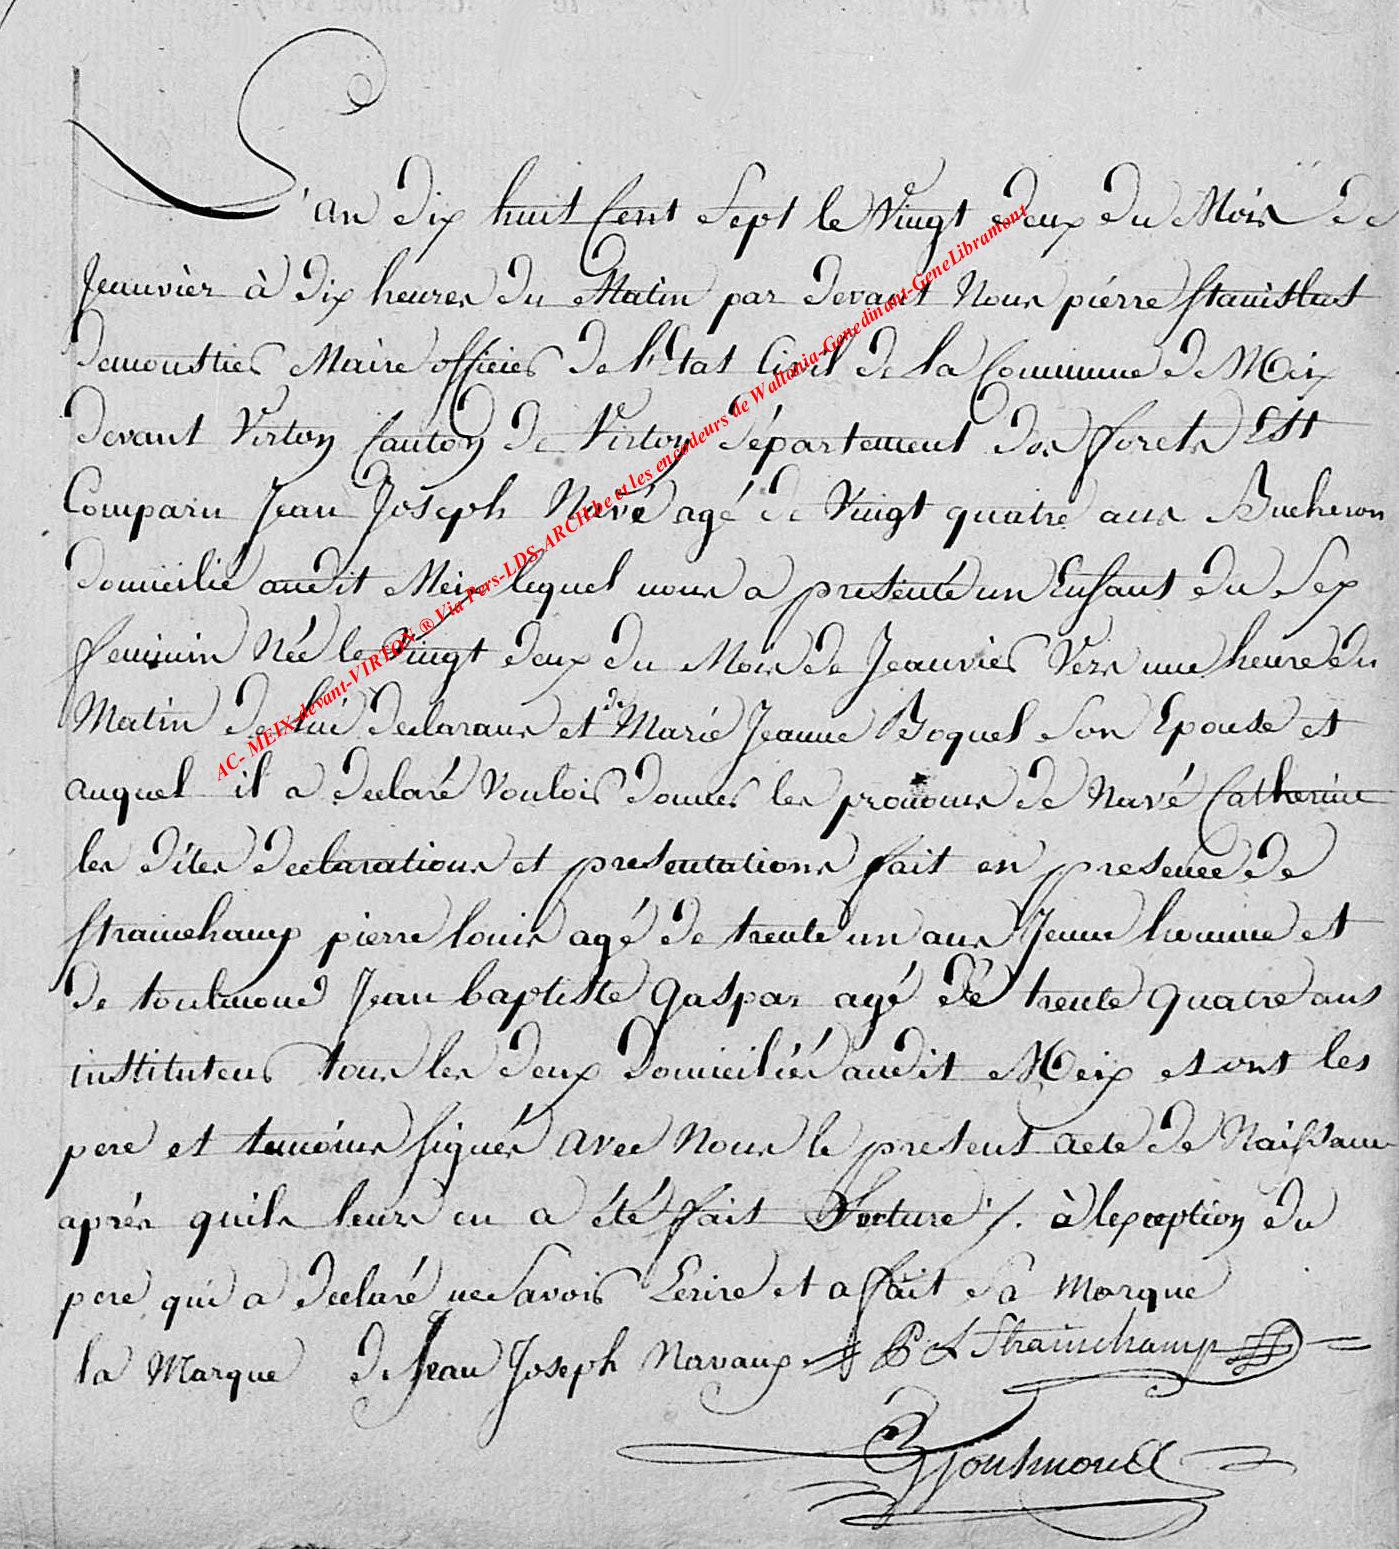 L'an dix huit Cent Sept le Vingt deux du Mois de
Jeanvièr à dix heures du Matin par devant Nous piérre stanislas
demoustier Maire officier de l'Etat Civil de la Commune de Meix
devant Virton Canton de Virton département des forets Est
Comparu Jean Joseph Navé agé de Vingt quatre ans Bucheron
domicilié audit Meix lequel nous a presenté un Enfant du Sex
feminin Née le Vingt deux du Mois de Jeanvier Vers une heure du
Matin de lui declarans et de Marié Jeanne Boquel Son Epouse et
auquel il a declaré Vouloir donner les pronoms de Navé Catherine
les dites declarations et presentations fait en presence de
strainchamp pierre louis agé de trente un ans Jeune homme et
de toulmond Jean baptiste gaspar agé de trente quatre ans
instituteur tous les deux domiciliés audit Meix et ont les
pere et temoins signés avec Nous le present acte de Naissance
aprés quils leurs en a été fait lecture ·/. à lexception du
pere qui a declaré ne Savoir Ecrire et a fait Sa Marque
la Marque de Jean Joseph Navaux P L Strainchamp
Toulmond
AC- MEIX-devant-VIRTON ® Via Pers-LDS-ARCH be et les encodeurs de Wallonia-Genedinant-GeneLibramont